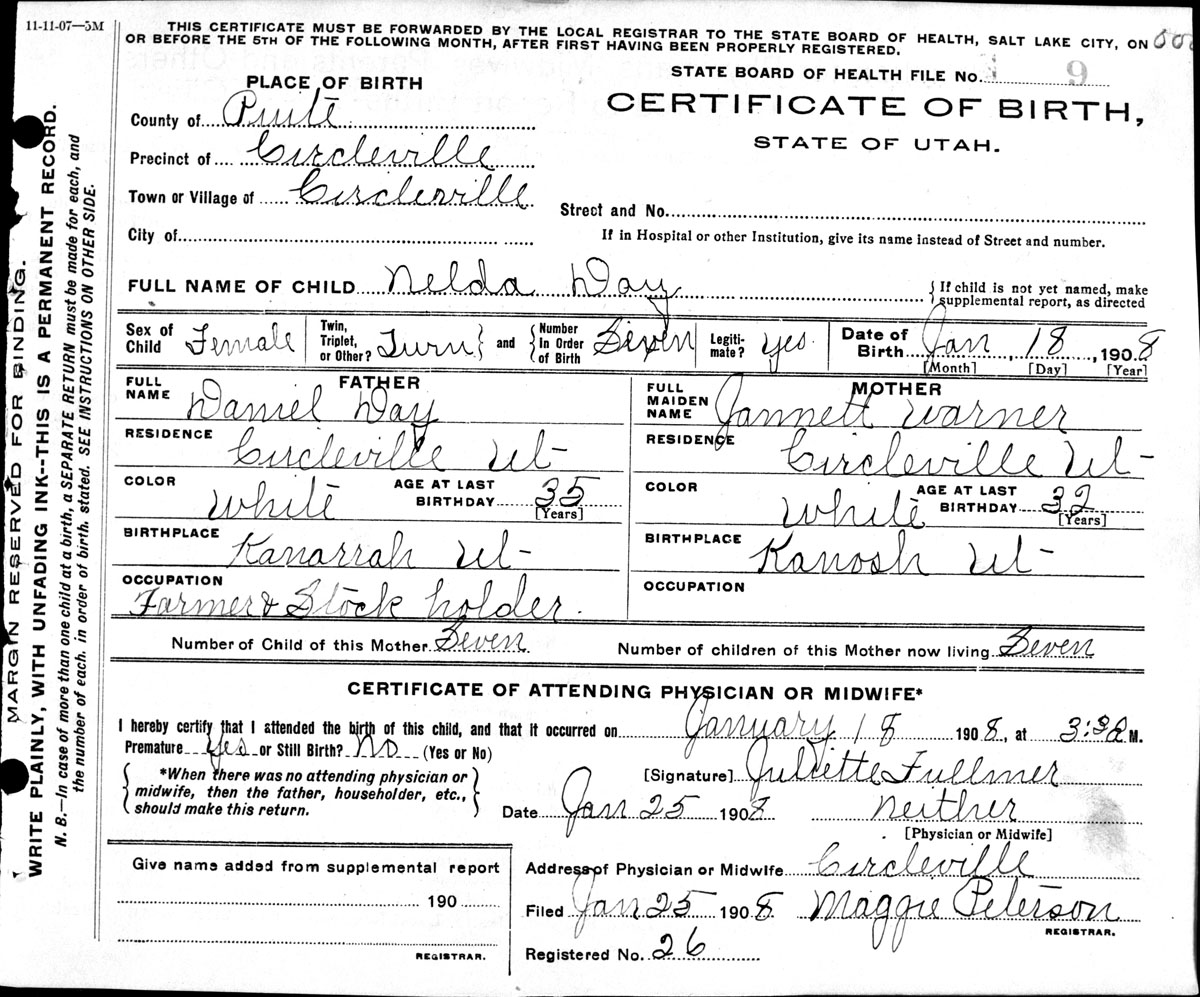 11-11-07—5M
THIS CERTIFICATE MUST BE FORWARDED BY THE LOCAL REGISTRAR TO THE STATE BOARD OF HEALTH, SALT LAKE CITY, ON
OR BEFORE THE 5TH OF THE FOLLOWING MONTH, AFTER FIRST HAVING BEEN PROPERLY REGISTERED.
PLACE OF BIRTH
STATE BOARD OF HEALTH FILE No. 9
CERTIFICATE OF BIRTH,
STATE OF UTAH.
County of Piute
Precinct of Circleville
Town or Village of Circleville
Street and No.
City of
If in Hospital or other Institution, give its name instead of Street and number.
FULL NAME OF CHILD Nelda Day
{If child is not yet named, make
supplemental report, as directed
Sex of Child Female
Twin, Triplet, or Other? Turn} and {Number In Order of Birth Seven
Legiti-mate? Yes.
Date of Birth Jan, 18, 1908
[Month] [Day] [Year]
FATHER
FULL NAME Daniel Day
RESIDENCE Circleville Ut-
COLOR White
AGE AT LAST BIRTHDAY 35
[Years]
BIRTHPLACE Kanarrah Ut-
OCCUPATION
Farmer & Stock holder.
MOTHER
FULL MAIDEN NAME Jannett Warner
RESIDENCE Circleville Ut-
COLOR White
AGE AT LAST BIRTHDAY 32
[Years]
BIRTHPLACE Kanosh Ut-
OCCUPATION
Number of Child of this Mother Seven
Number of children of this Mother now living Seven
CERTIFICATE OF ATTENDING PHYSICIAN OR MIDWIFE*
I hereby certify that I attended the birth of this child, and that it occurred on January 18 1908, at 3:30 M.
Premature Yes or Still Birth? No (Yes or No)
{*When there was no attending physician or
midwife, then the father, householder, etc.,
should make this return.}
[Signature] Juliette Fullmer
Date Jan 25 1908 Neither
[Physician or Midwife]
Give name added from supplemental report
190
REGISTRAR.
Address of Physician or Midwife Circleville
Filed Jan 25 1908 Maggie Peterson
REGISTRAR.
Registered No. 26
MARGIN RESERVED FOR BINDING.
WRITE PLAINLY, WITH UNFADING INK--THIS IS A PERMANENT RECORD.
N. B.—In case of more than one child at a birth, a SEPARATE RETURN must be made for each, and
the number of each. in order of birth. stated. SEE INSTRUCTIONS ON OTHER SIDE.